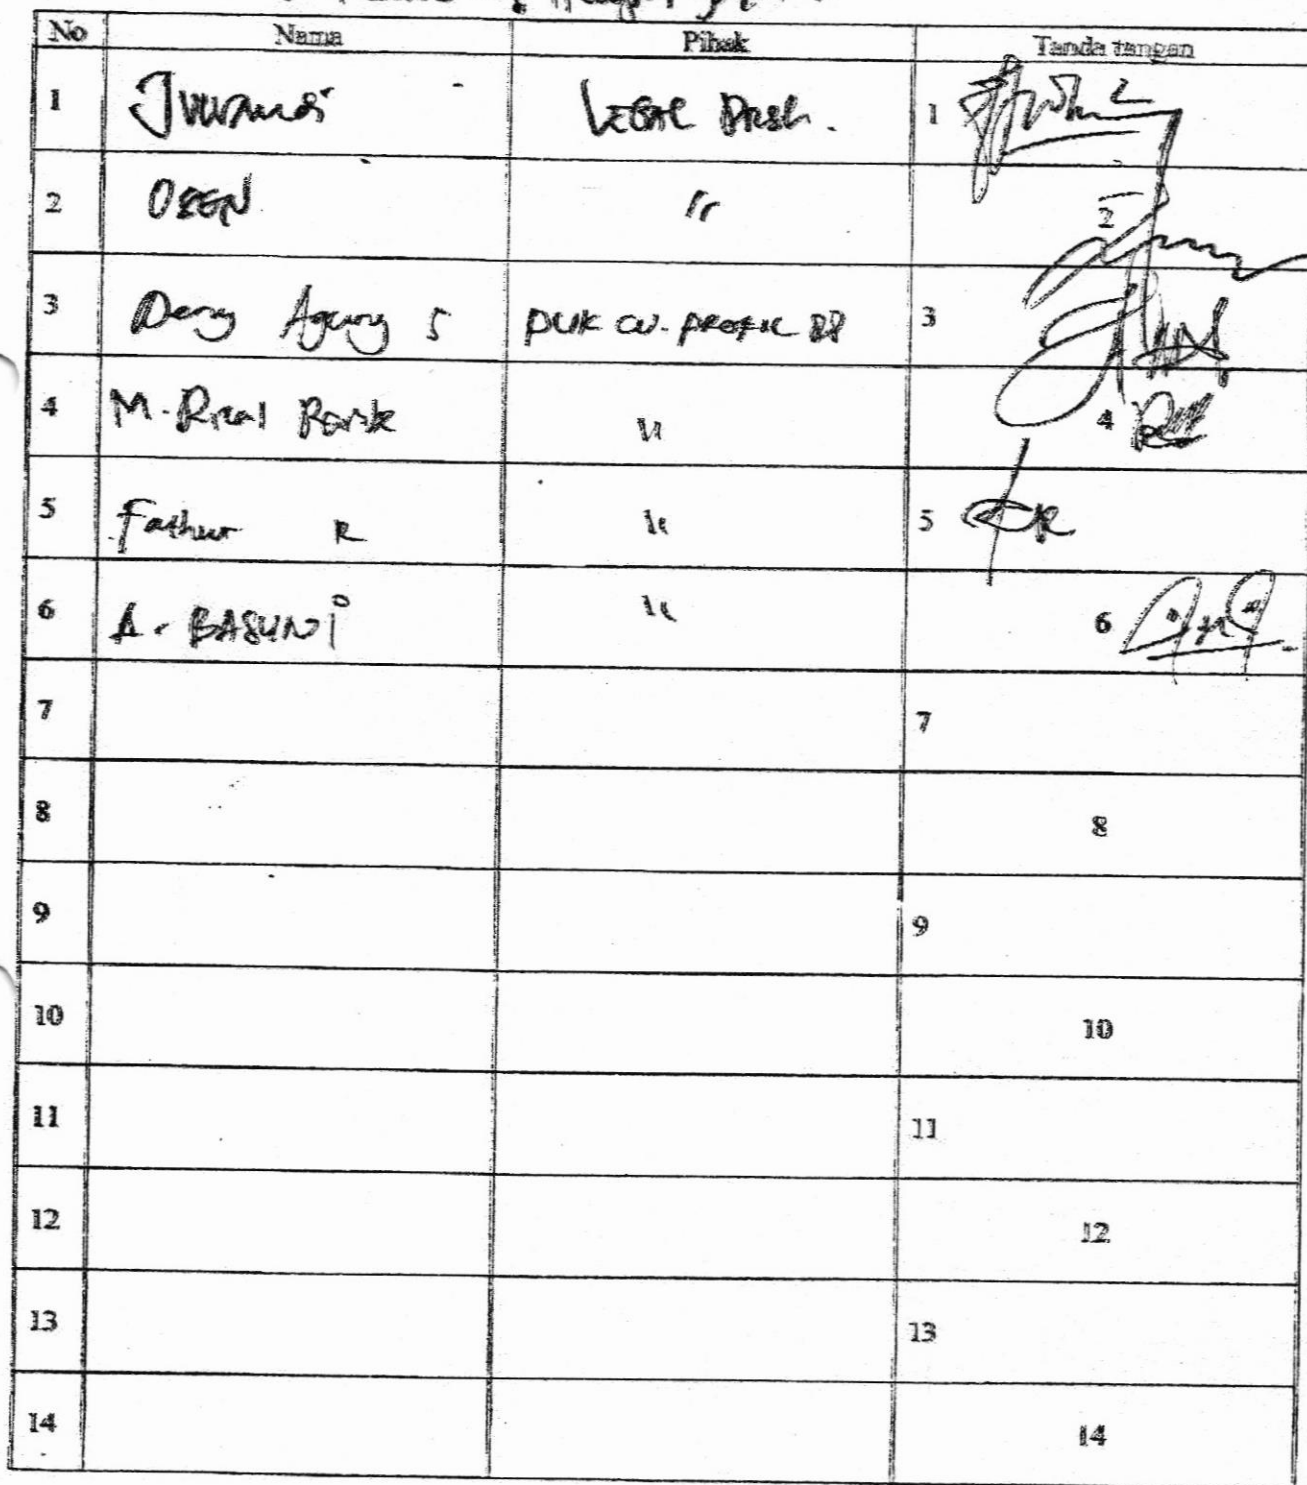 No Nama Pihak Tanda tangan
1 1
2 OSEN 〃 2
3 Deny Agung S PUK CV. PROFIL 88 3
4 M. Rizal 〃 4
5 Fathur R 〃 5
6 A. BASUNI 〃 6
7 7
8 8
9 9
10 10
11 11
12 12
13 13
14 14